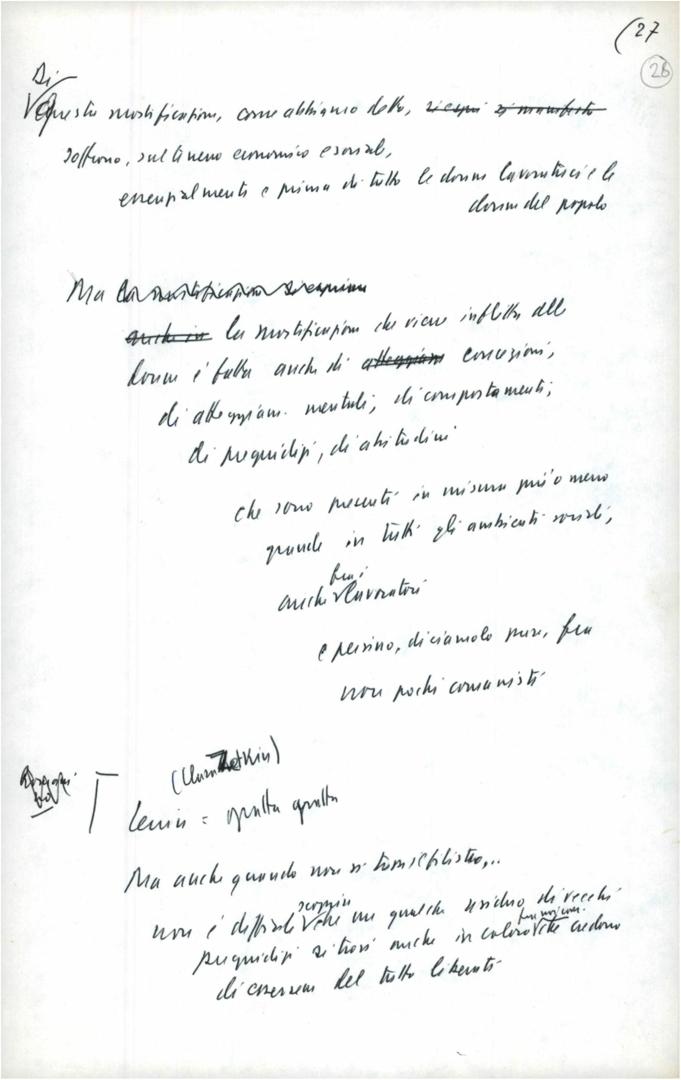 (27
26
Di
Questa mortificazione, come abbiamo detto, si esprime si manifesta
soffrono, sul terreno economico e sociale,
essenzialmente e prima di tutto le donne lavoratrici e le
donne del popolo
Ma la mortificazione si esprime
anche in la mortificazione che viene inflitta alle
donne è fatta anche di atteggiam concezioni,
di atteggiam. mentali, di comportamenti,
di pregiudizi, di abitudini
che sono presenti in misura più o meno
grande in tutti gli ambienti sociali,
fra i
anche lavoratori
e persino, diciamolo pure, fra
non pochi comunisti
(Clara Zetkin)
Lenin = gratta gratta
Ma anche quando non si trova il filisteo,..
non è difficile che un qualche residuo di vecchi
pregiudizi si trovi anche in coloro che credono
di essersene del tutto liberati